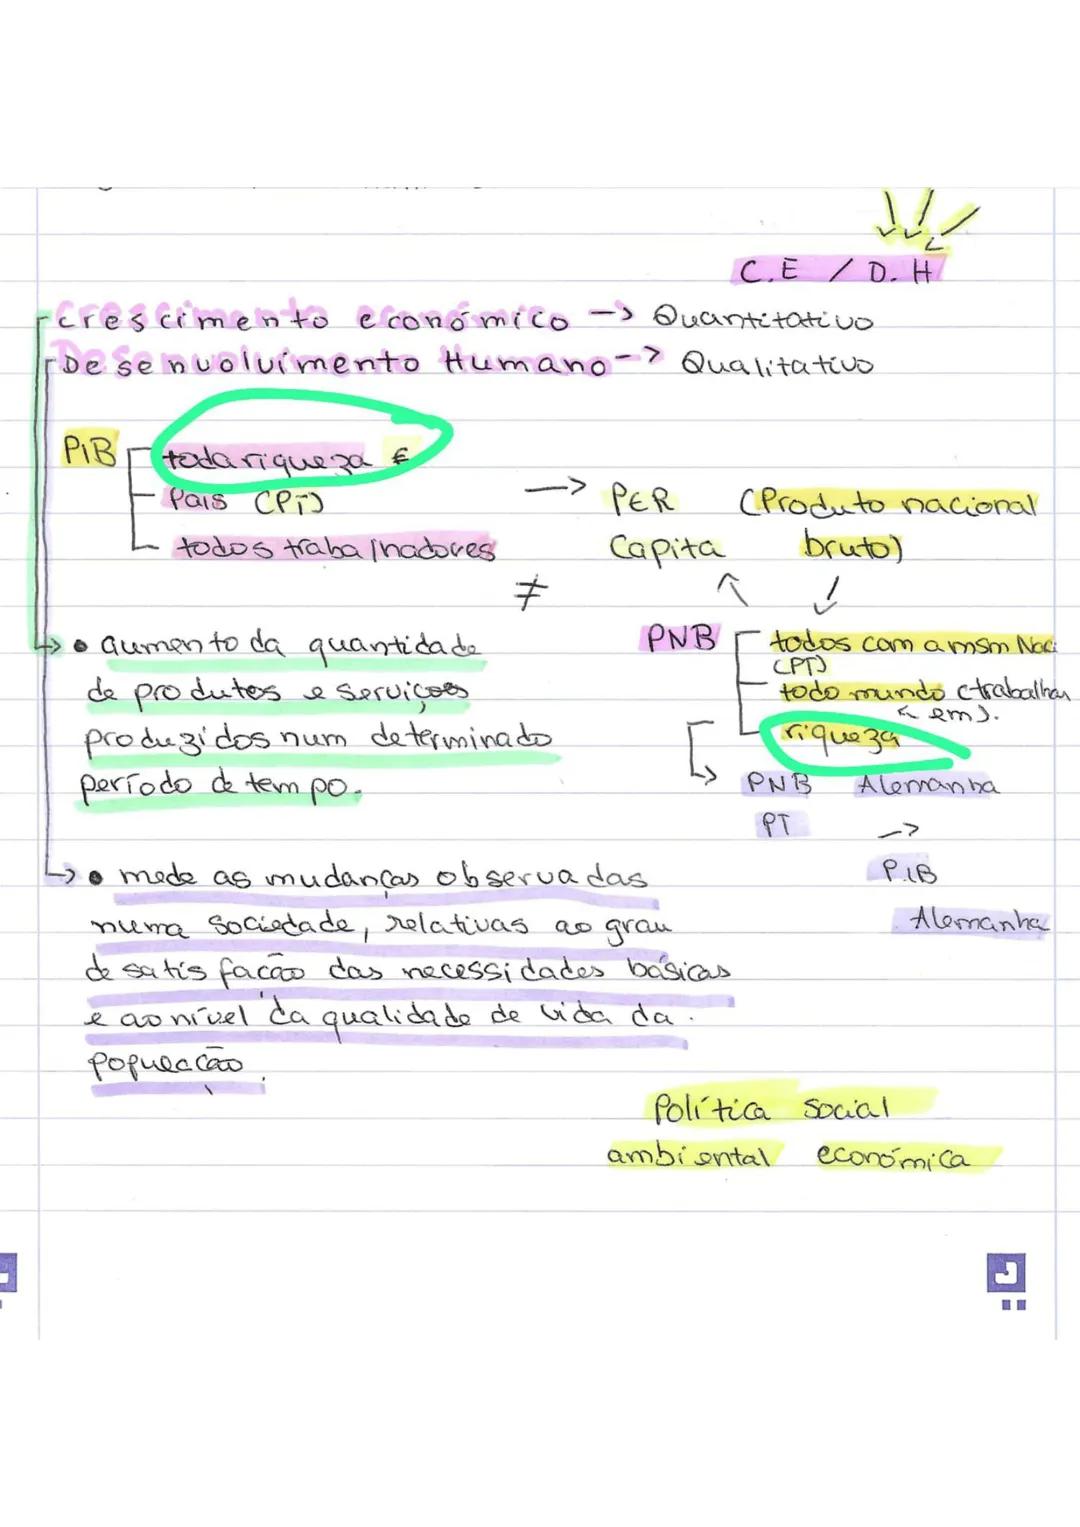 C.E / D.H
Crescimento económico -> Quantitativo
Desenvolvimento Humano -> Qualitativo
PIB
toda riqueza €
País (PT)
todos trabalhadores
-> PER Capita
(Produto nacional bruto)
≠
PNB
todos com a msm Naci
(PT)
todo mundo (trabalhar
em).
riqueza
PNB Alemanha
PT ->
P.IB
Alemanha
• aumento da quantidade
de produtos e serviços
produzidos num determinado
período de tempo.
• mede as mudanças observadas
numa sociedade, relativas ao grau
de satisfação das necessidades básicas
e ao nível da qualidade de vida da
população.
Política social
ambiental económica